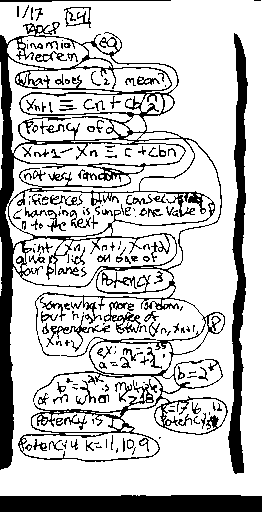 1/17
P24 [24]
Binomial eq
theorem
What does (n 2) mean?
Xn+1 ≡ cn + cb(n 2)
Potency of 2
Xn+1 - Xn ≡ c + cbn
not very random
differences btwn consecutive
changing is simple: one value of
n to the next
point (Xn, Xn+1, Xn+2)
always lies on one of
four planes
Potency 3
Somewhat more random,
but high degree of
dependence btwn (Xn, Xn+1, 18
Xn+2)
ex: m = 2^35,
a = 2^k + 1
b = 2^k
is multiple
of m when k ≥ 18
k = 17, 16, 12
Potency is 2
Potency 3
Potency 4 k = 11, 10, 9